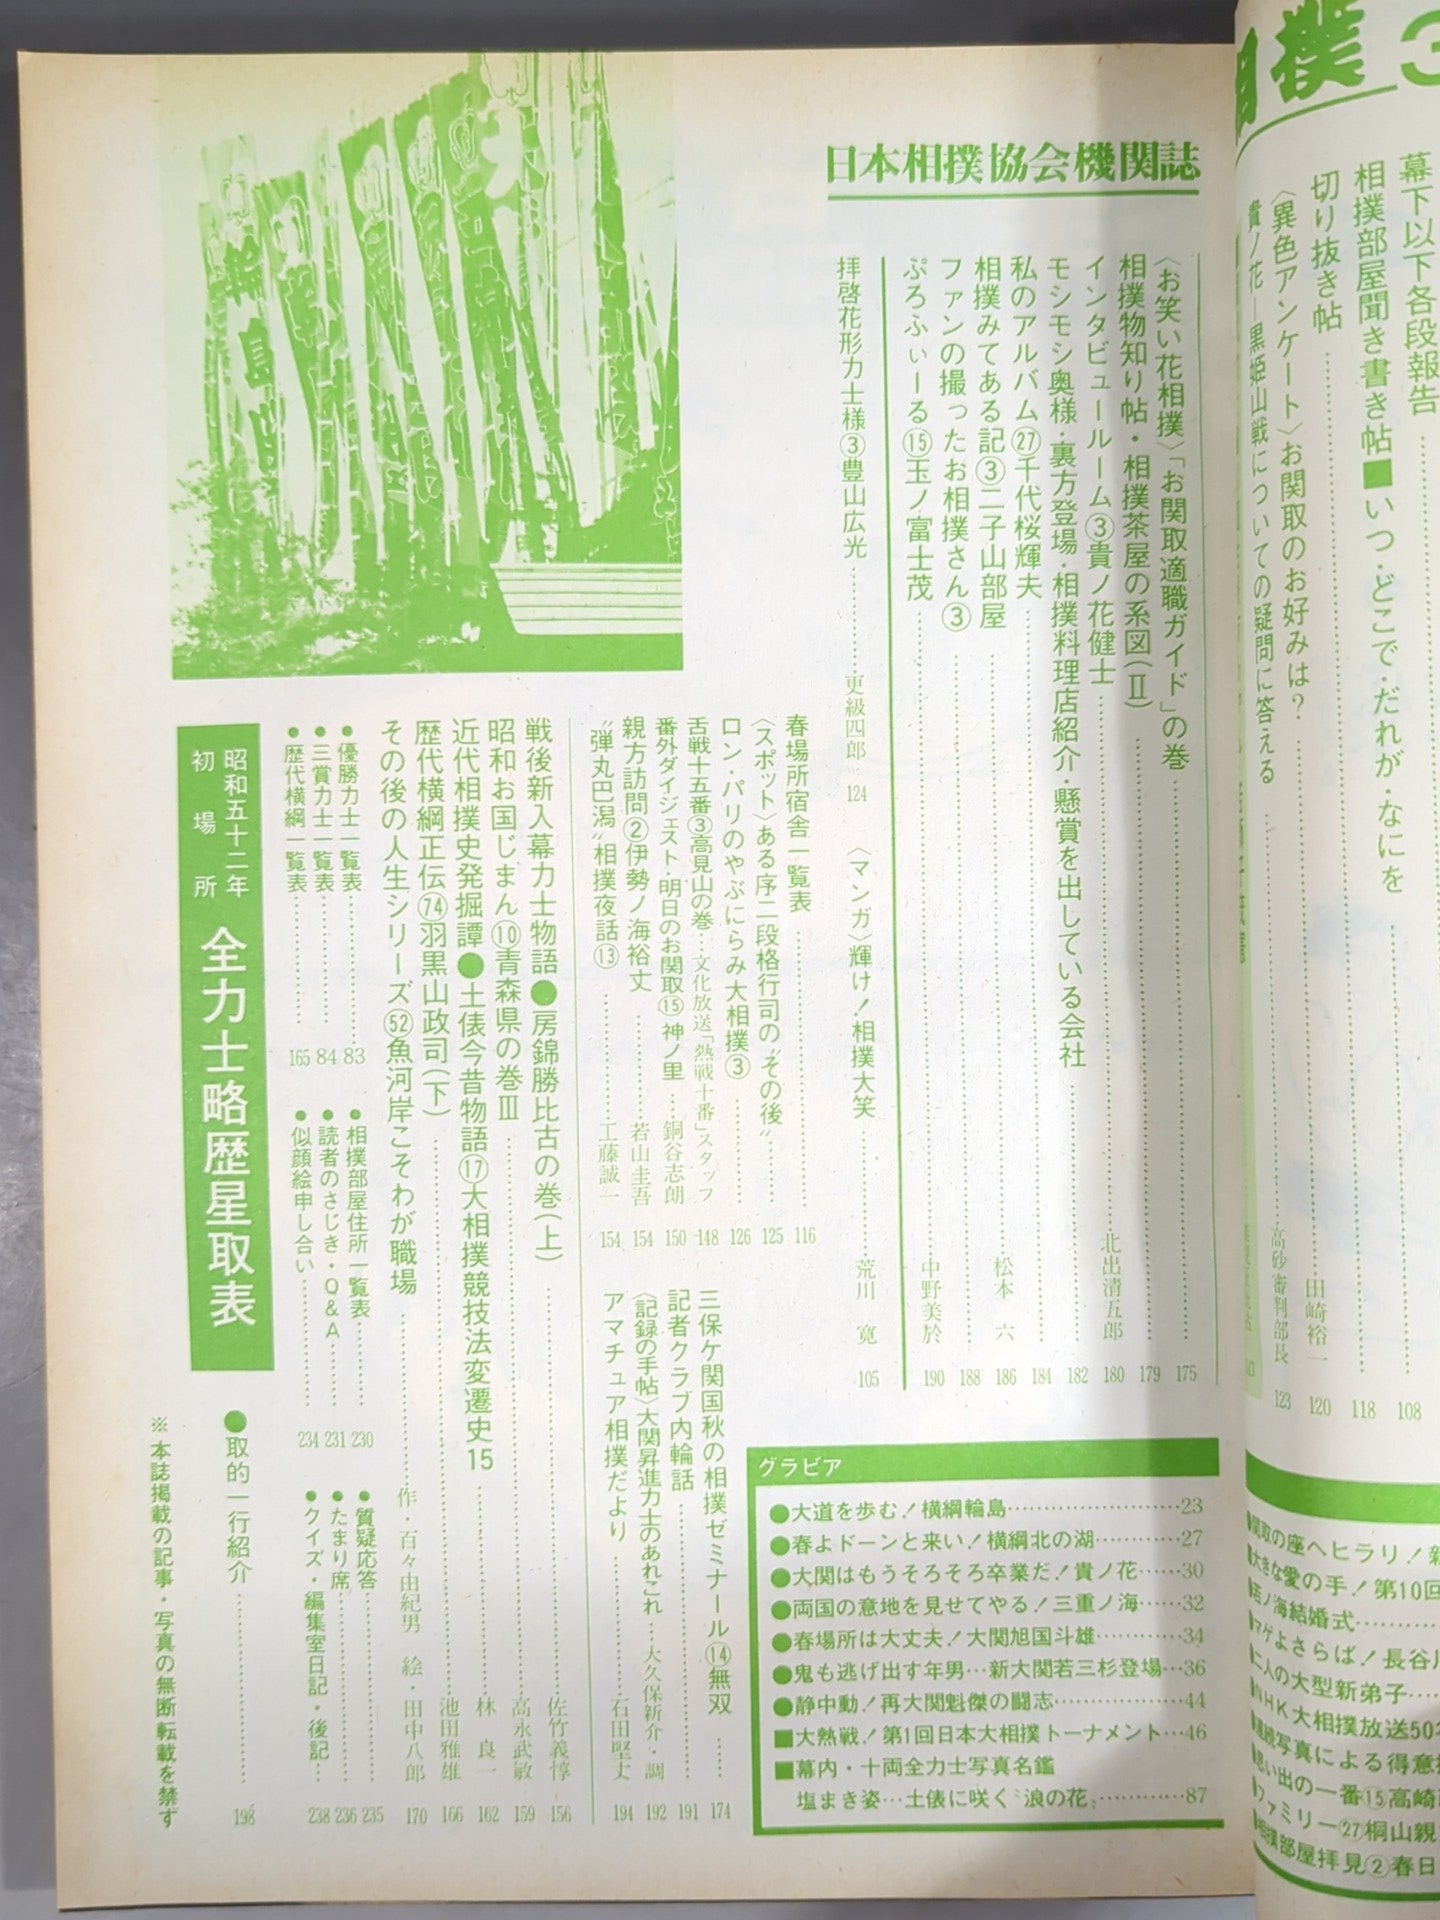 相撲 3
幕下以下各段報告
108
相撲部屋聞き書き帖■いつ・どこで・だれが・なにを
118
切り抜き帖
田崎裕一 120
〈異色アンケート〉お関取のお好みは?
貴ノ花―黒姫山戦についての疑問に答える
高砂審判部長 123
日本相撲協会機関誌
〈お笑い花相撲〉「お関取適職ガイド」の巻 175
相撲物知り帖・相撲茶屋の系図(II) 179
インタビュールーム③貴ノ花健士 北出清五郎 180
モシモシ奥様・裏方登場・相撲料理店紹介・懸賞を出している会社 182
私のアルバム㉗千代桜輝夫 184
相撲みてある記③二子山部屋 松本 六 186
ファンの撮ったお相撲さん③ 188
ぷろふぃーる⑮玉ノ富士茂 中野美於 190
拝啓花形力士様③豊山広光 更級四郎 124
〈マンガ〉輝け!相撲大笑 荒川 寛 105
春場所宿舎一覧表 116
〈スポット〉ある序二段格行司の〝その後〟 125
ロン・パリのやぶにらみ大相撲③ 126
舌戦十五番③高見山の巻…文化放送「熱戦十番」スタッフ 148
番外ダイジェスト・明日のお関取⑮神ノ里 銅谷志朗 150
親方訪問②伊勢ノ海裕丈 若山圭吾 154
〝弾丸巴潟〟相撲夜話⑬ 工藤誠一 154
三保ケ関国秋の相撲ゼミナール⑭無双 174
記者クラブ内輪話 191
〈記録の手帖〉大関昇進力士のあれこれ…大久保新介・調 192
アマチュア相撲だより 石田堅丈 194
戦後新入幕力士物語●房錦勝比古の巻(上) 佐竹義惇 156
昭和お国じまん⑩青森県の巻III 高永武敏 159
近代相撲史発掘譚●土俵今昔物語⑰大相撲競技法変遷史15 林 良一 162
歴代横綱正伝㊼羽黒山政司(下) 池田雅雄 166
その後の人生シリーズ㊾魚河岸こそわが職場 作・百々由紀男 絵・田中八郎 170
●優勝力士一覧表 83
●三賞力士一覧表 84
●歴代横綱一覧表 165
●相撲部屋住所一覧表 230
●読者のさじき・Q&A 231
●似顔絵申し合い 234
●質疑応答 235
●たまり席 236
●クイズ・編集室日記・後記 238
昭和五十二年
初場所
全力士略歴星取表
●取的一行紹介 198
※本誌掲載の記事・写真の無断転載を禁ず
グラビア
●大道を歩む!横綱輪島 23
●春よドーンと来い!横綱北の湖 27
●大関はもうそろそろ卒業だ!貴ノ花 30
●両国の意地を見せてやる!三重ノ海 32
●春場所は大丈夫!大関旭国斗雄 34
●鬼も逃げ出す年男…新大関若三杉登場 36
●静中動!再大関魁傑の闘志 44
■大熱戦!第1回日本大相撲トーナメント 46
■幕内・十両全力士写真名鑑
塩まき姿…土俵に咲く〝浪の花〟 87
関取の座へヒラリ!
大きな愛の手!第10回
若ノ海結婚式
マゲよさらば!長谷川
二人の大型新弟子
NHK大相撲放送50
連続写真による得意
思い出の一番⑮高崎
ファミリー㉗桐山親
相撲部屋拝見②春日
輪島